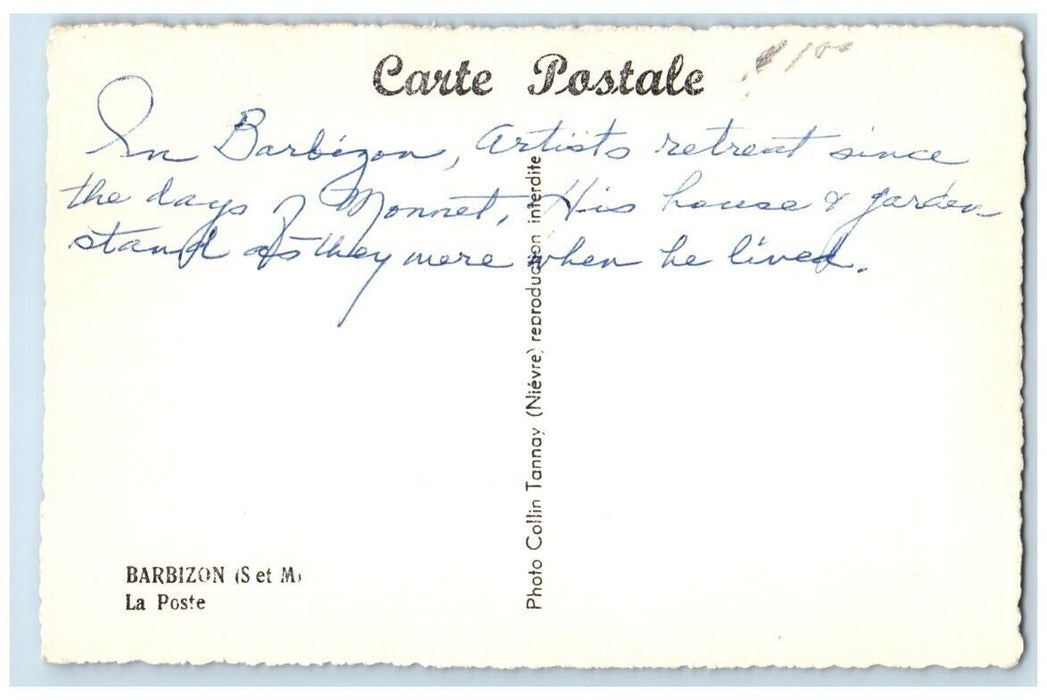 Carte Postale
In Barbizon, Artists retreat since
the days of Monnet, His house & garden
stand as they were when he lived.
Photo Collin Tannay (Niévre) reproduction interdite
BARBIZON (S et M)
La Poste